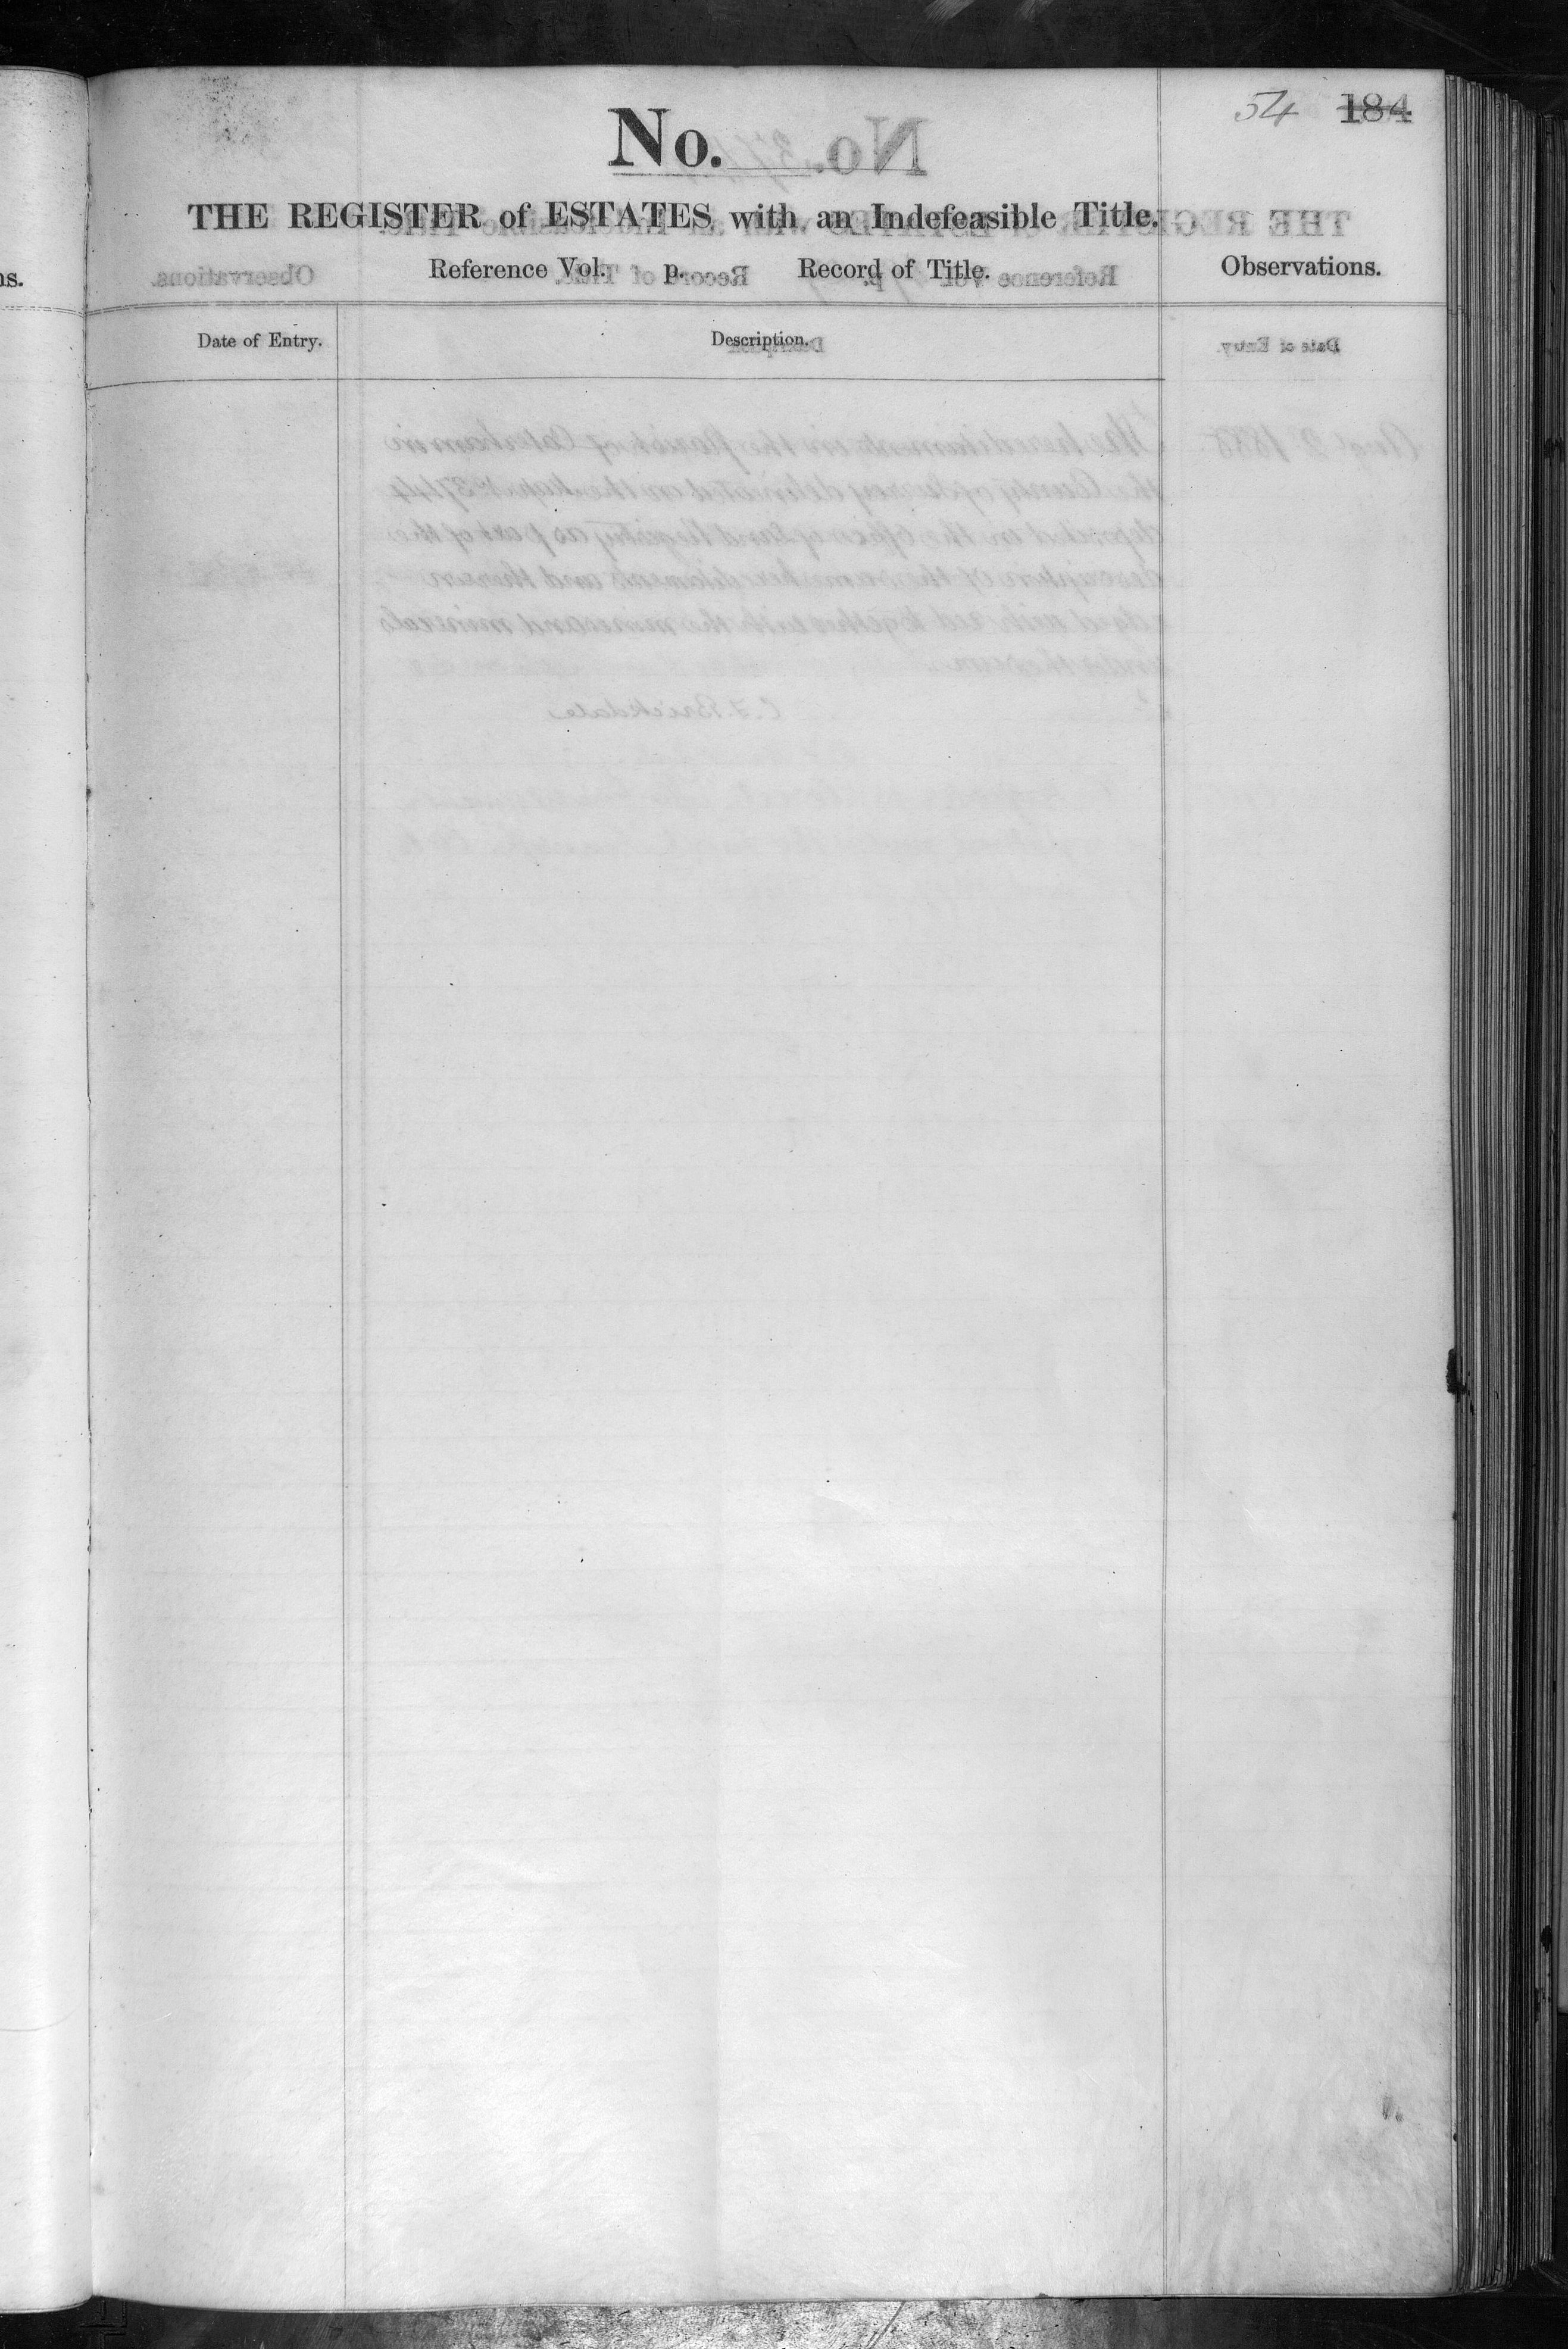 54 184
No.
THE REGISTER of ESTATES with an Indefeasible Title.
Reference Vol. p. Record of Title.
Observations.
Date of Entry.
Description.
ns.